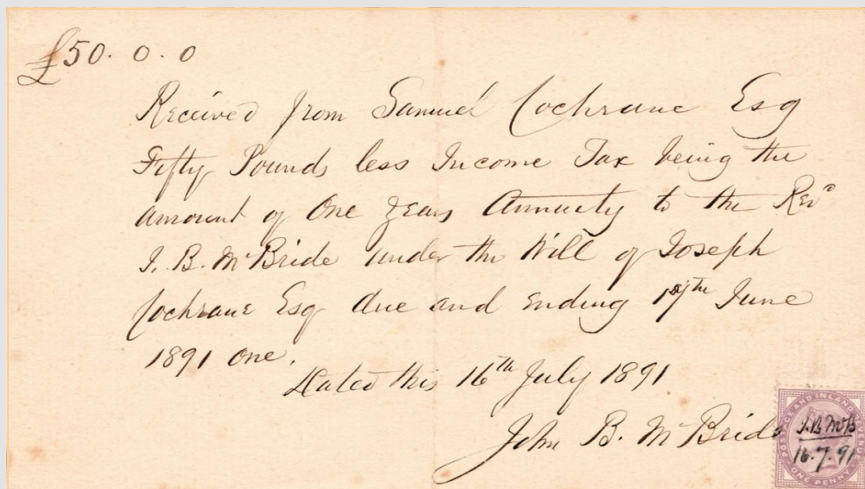 £50. 0. 0
Received from Samuel Cochrane Esq
Fifty Pounds less Income Tax being the
amount of One years Annuity to the Revd
J. B. McBride under the Will of Joseph
Cochrane Esq due and ending 19th June
1891 one.
Dated this 16th July 1891
John B. McBride
POSTAGE AND INLAND REVENUE
J.B McB
16.7.91
ONE PENNY